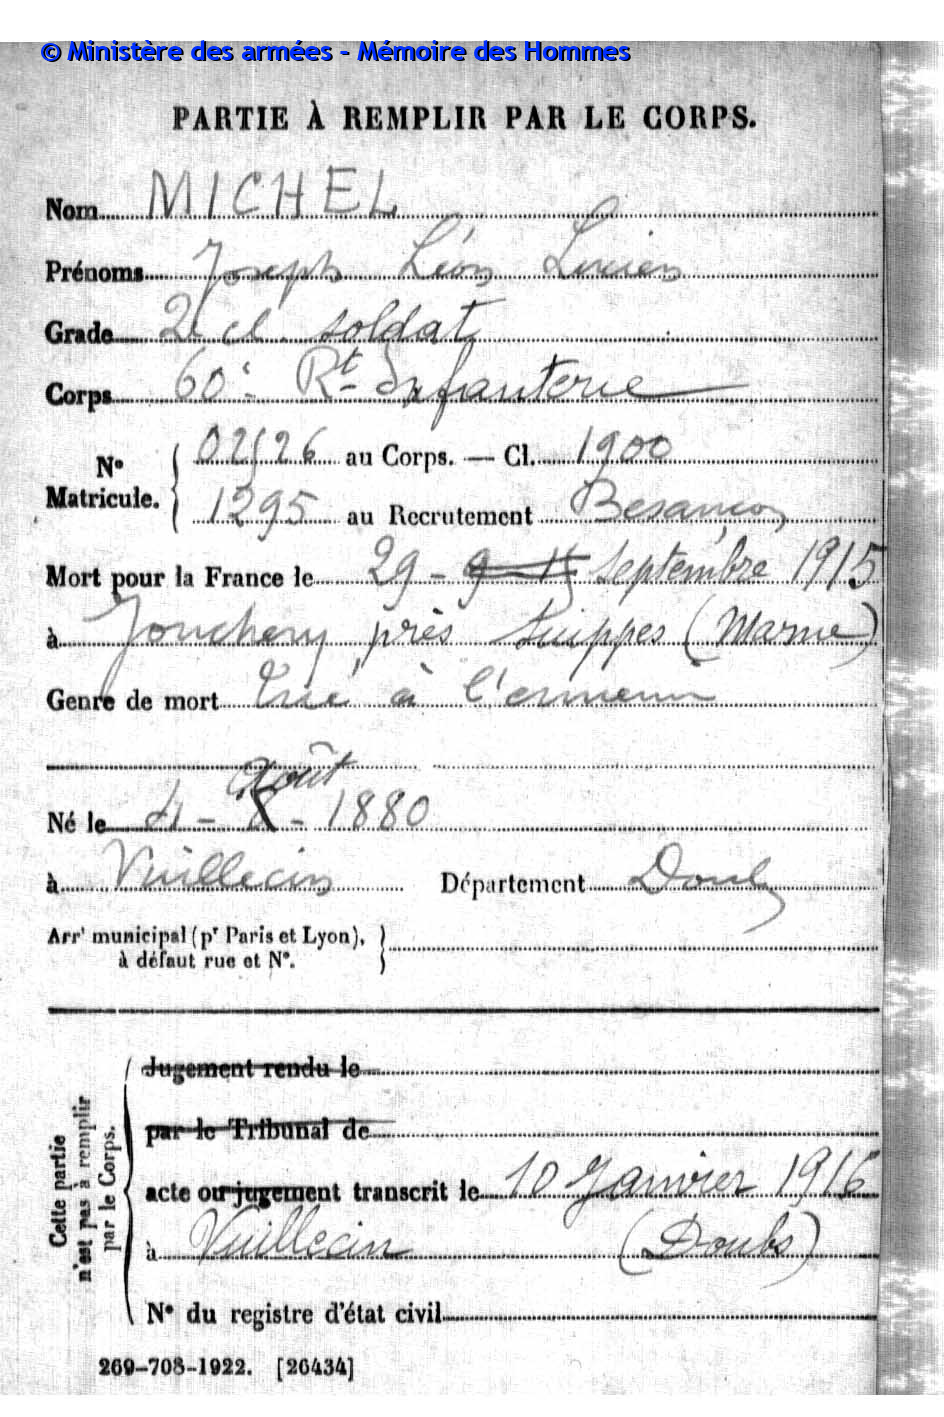 © Ministère des armées - Mémoire des Hommes
PARTIE À REMPLIR PAR LE CORPS.
Nom MICHEL
Prénoms Joseph Léon Lucien
Grade 2e cl. soldat
Corps 60e Rt Infanterie
No Matricule. { 02126 au Corps. — Cl. 1900
1295 au Recrutement Besançon
Mort pour la France le 29 - septembre 1915
à Jonchery près Suippes (Marne)
Genre de mort Tué à l'ennemi
août
Né le 4 - 8 - 1880
à Vuillecin Département Doubs
Arrt municipal (pr Paris et Lyon), }
à défaut rue et No.
Cette partie n'est pas à remplir par le Corps.
Jugement rendu le
par le Tribunal de
acte ou jugement transcrit le 10 Janvier 1916
à Vuillecin (Doubs)
No du registre d'état civil
269-708-1922. [26434]